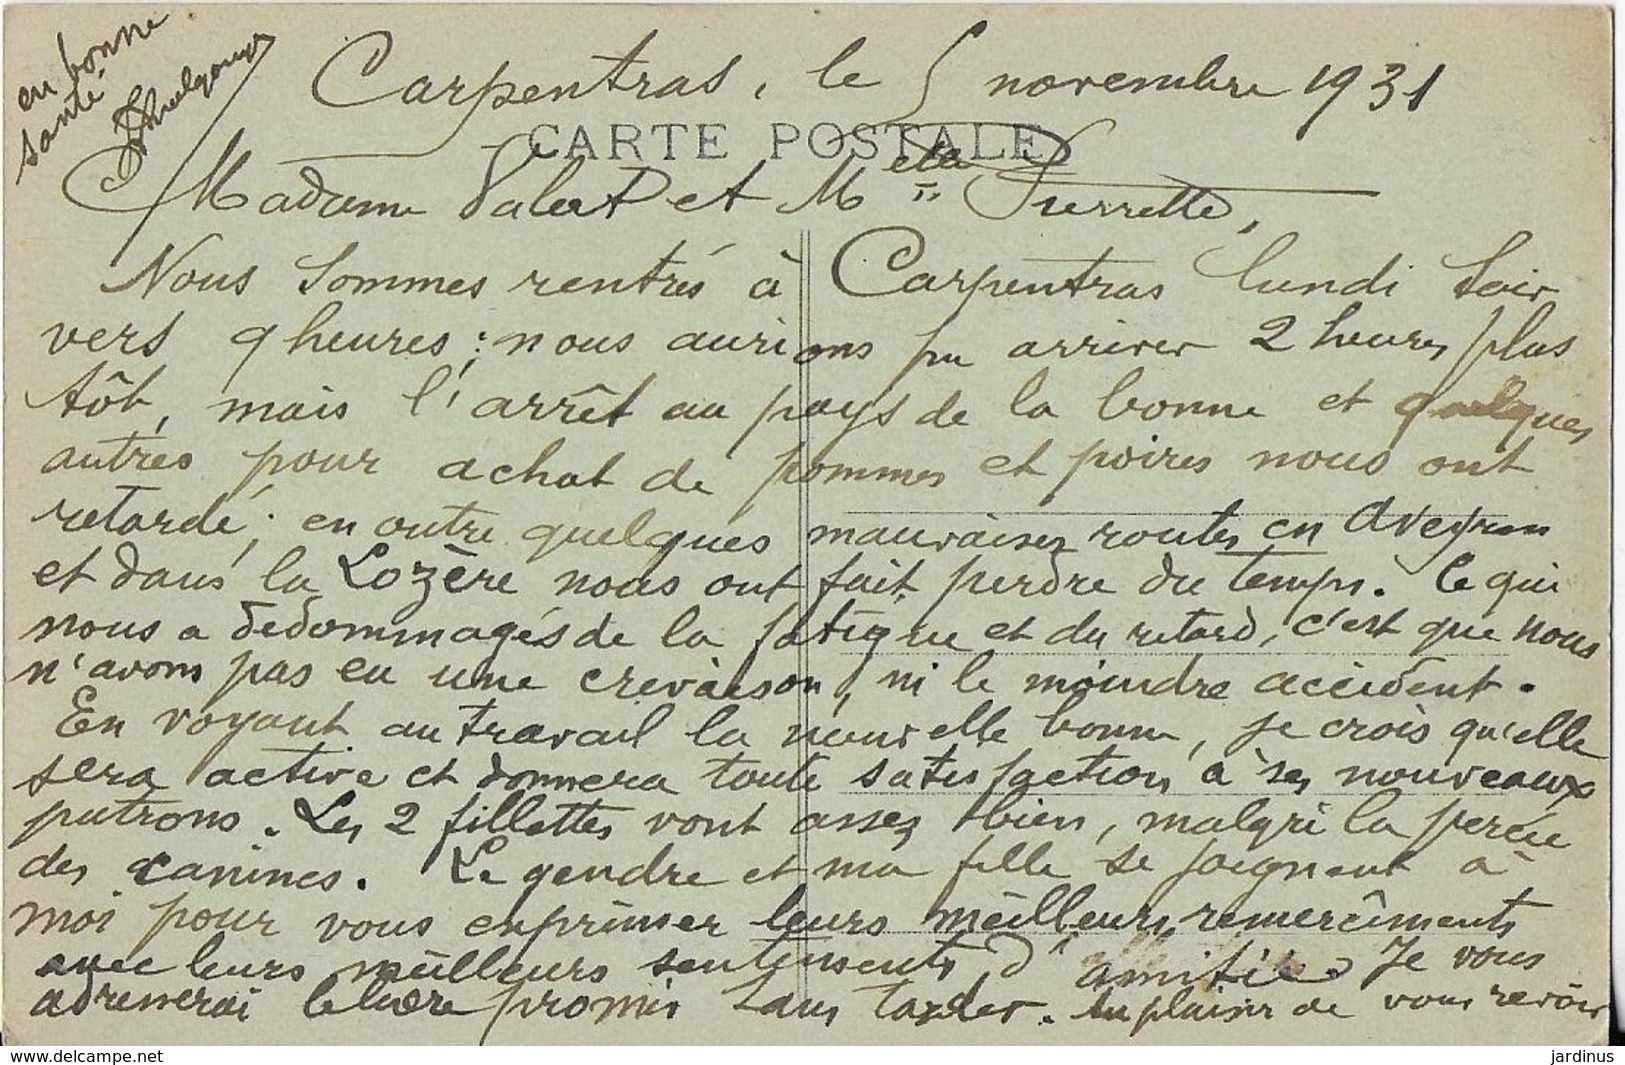 Carpentras, le 5 novembre 1931
CARTE POSTALE
Madame Valat et Melle Pierrette,
Nous sommes rentrés à Carpentras lundi soir
vers 9 heures ; nous aurions pu arriver 2 heures plus
tôt, mais l'arrêt au pays de la bonne et quelques
autres pour achat de pommes et poires nous ont
retardé ; en outre quelques mauvaises routes en Aveyron
et dans la Lozère nous ont fait perdre du temps. Ce qui
nous a dédommagés de la fatigue et du retard, c'est que nous
n'avons pas eu une crevaison, ni le moindre accident.
En voyant au travail la nouvelle bonne, je crois qu'elle
sera active et donnera toute satisfaction à ses nouveaux
patrons. Les 2 fillettes vont assez bien, malgré la percée
des canines. Le gendre et ma fille se joignent à
moi pour vous exprimer leurs meilleurs remerciments
avec leurs meilleurs sentiments d'amitié. Je vous
adresserai le livre promis sans tarder. Au plaisir de vous revoir
en bonne
santé
delcampe.net
jardinus